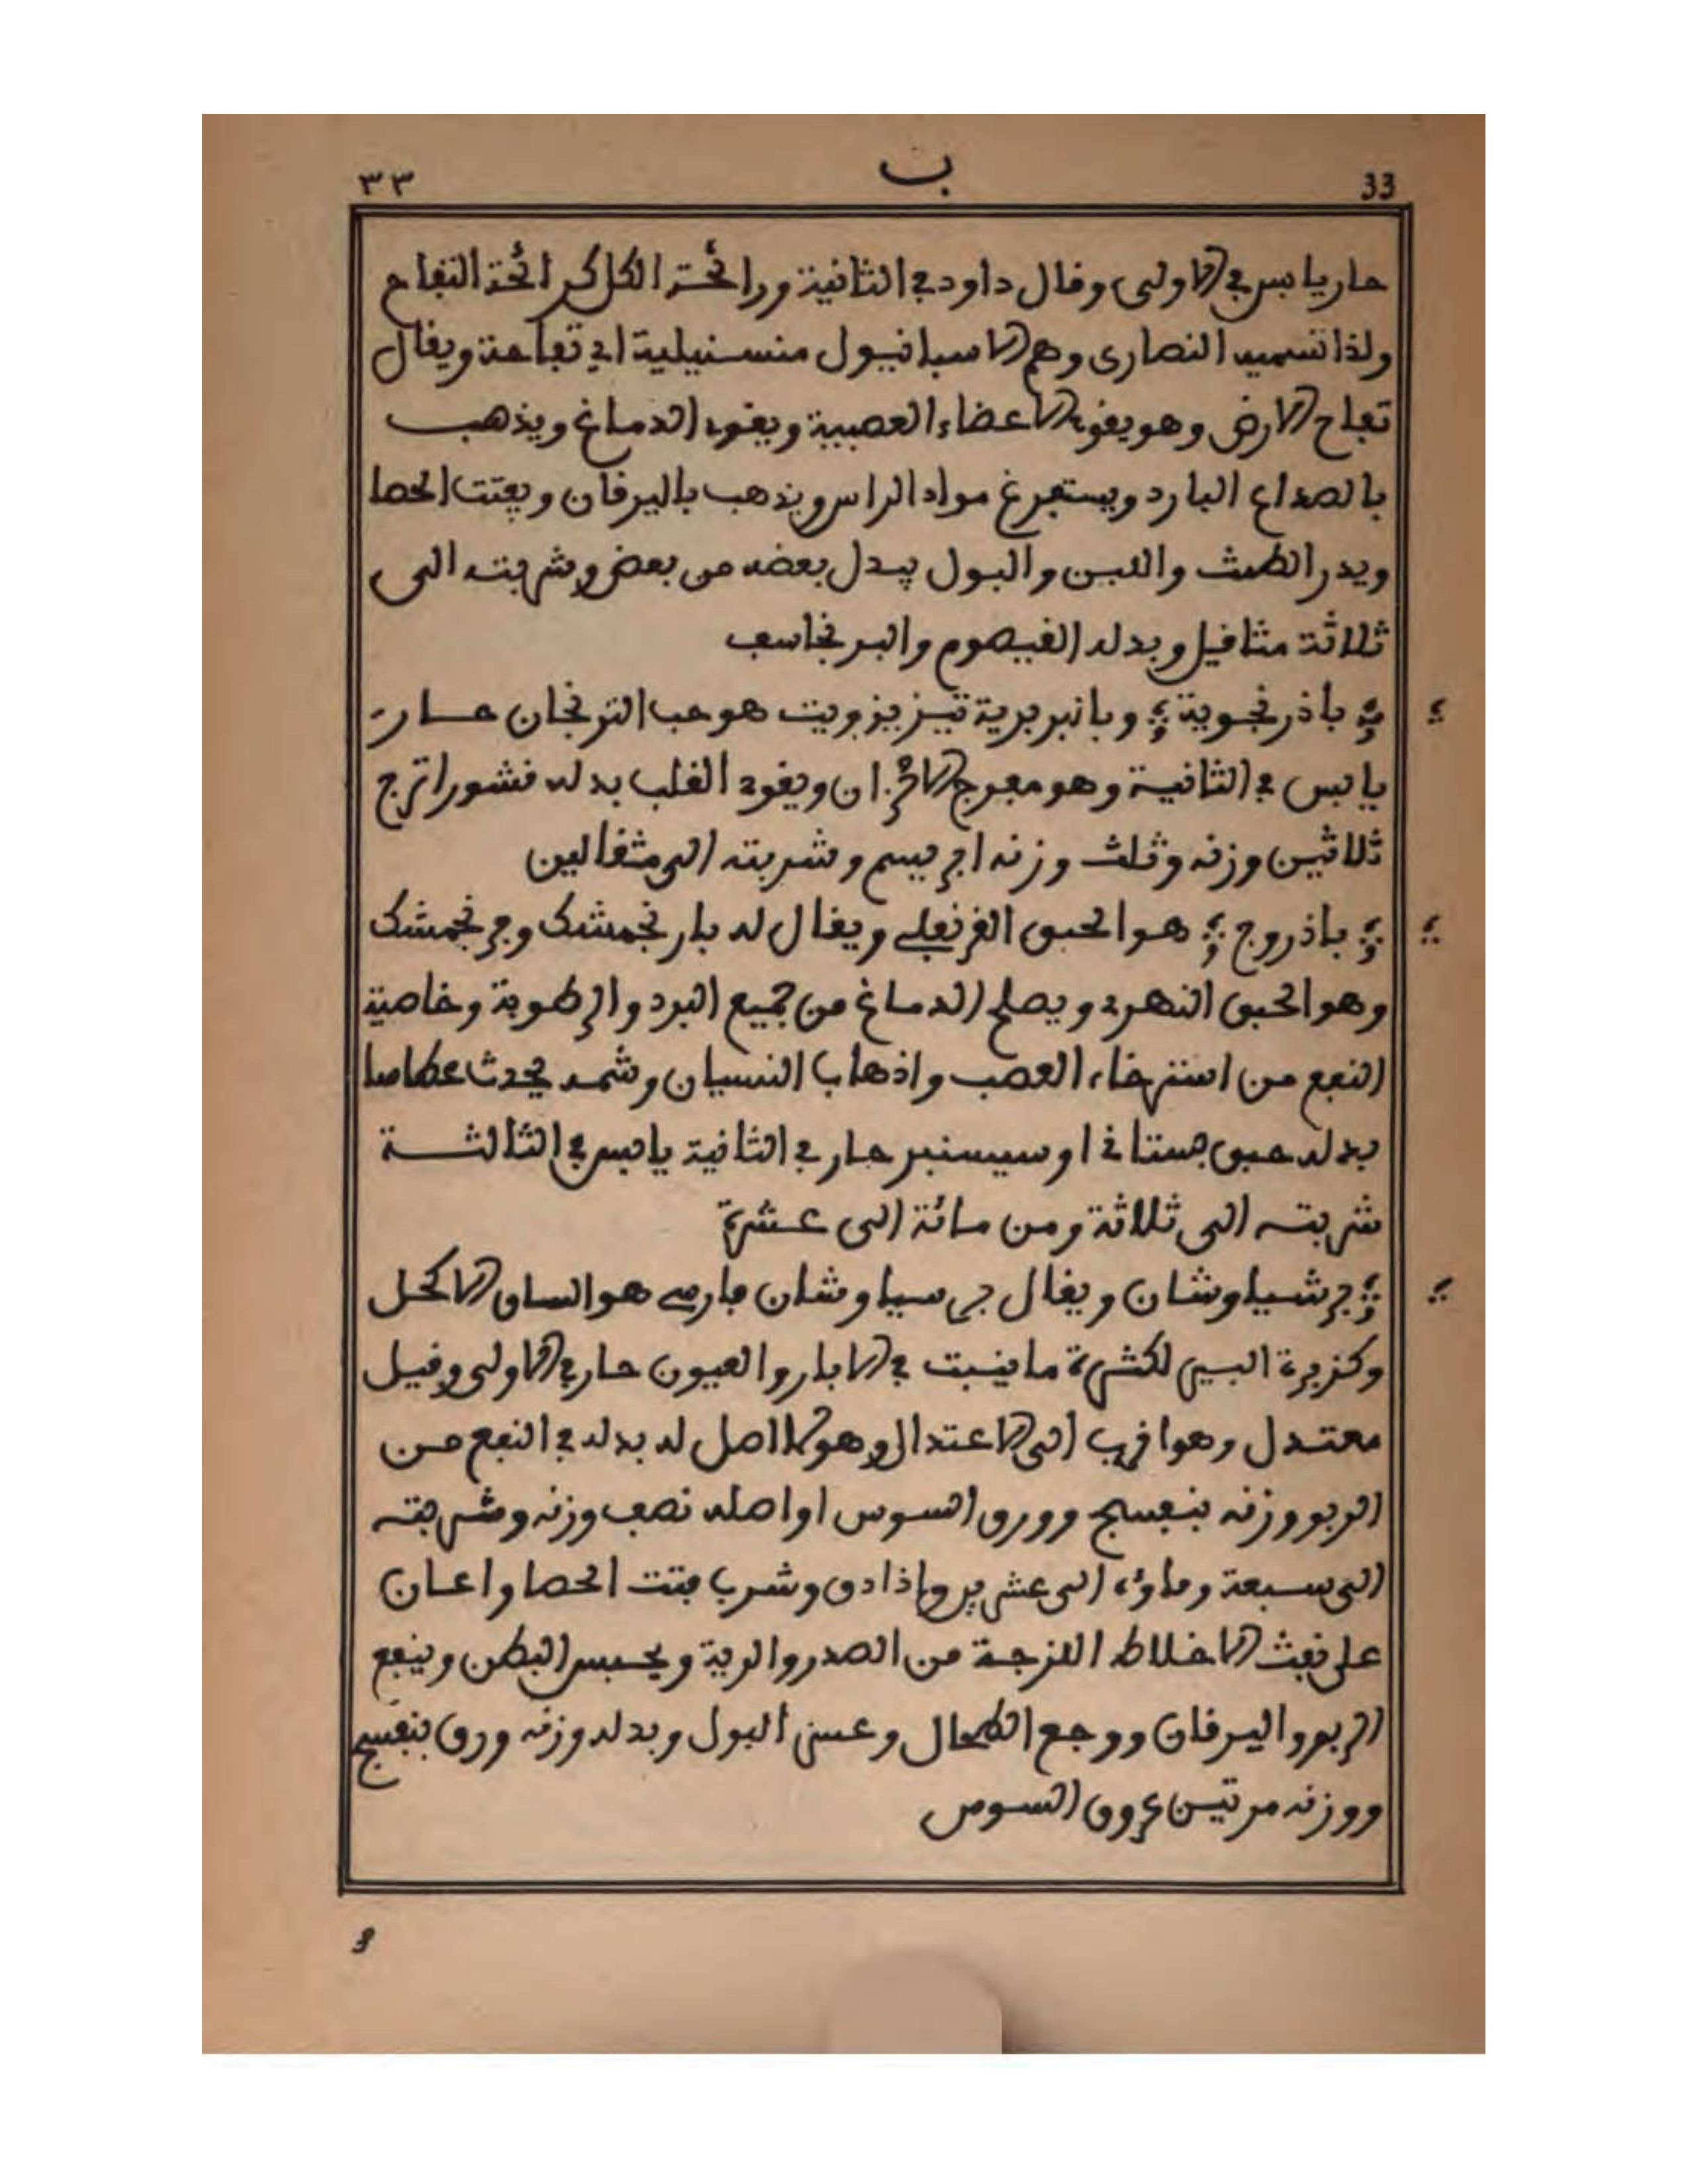 ٣٣ ب 33
حار يابس في الاولى وقال داود في الثانية ورائحة الكل كرائحة التفاح
ولذا تسميه النصارى وهم الاسبانيول منسنيلية اي تفاحة ويقال
تفاح الارض وهو يقوي الاعضاء العصبية ويقوي الدماغ ويذهب
بالصداع البارد ويستفرغ مواد الراس ويذهب باليرقان ويفتت الحصا
ويدر الطمث واللبن والبول يبدل بعضه من بعض وشربته الى
ثلاثة مثاقيل وبدله القيصوم والبرنجاسف
باذرنجوية وبالبربرية تيزيزويت هو حب الترنجان حار
يابس في الثانية وهو مفرج الاحزان ويقوي القلب بدله قشور اترج
ثلاثين وزنه وثلث وزنه ابريسم وشربته الى مثقالين
باذروج هو الحبق القرنفلي ويقال له بارنجمشك وفرنجمشك
وهو الحبق النهري ويصلح الدماغ من جميع البرد والرطوبة وخاصية
النفع من استرخاء العصب واذهاب النسيان وشمه يحدث عطاسا
بدله حبق بستاني او سيسنبر حار في الثانية يابس في الثالثة
شربته الى ثلاثة ومن مائة الى عشرة
برشياوشان ويقال بر سياوشان فارسي هو الساق الاكحل
وكزبرة البير لكثرة ما ينبت في الابار والعيون حار في الاولى وقيل
معتدل وهو اقرب الى الاعتدال وهو لا اصل له بدله في النفع من
الربو وزنه بنفسج وورق السوس او اصله نصف وزنه وشربته
الى سبعة وماؤه الى عشرين واذا دق وشرب فتت الحصا واعان
على نفث الاخلاط اللزجة من الصدر والرية ويحبس البطن وينفع
الربو واليرقان ووجع الطحال وعسر البول وبدله وزنه ورق بنفسج
ووزنه مرتين عروق السوس
3